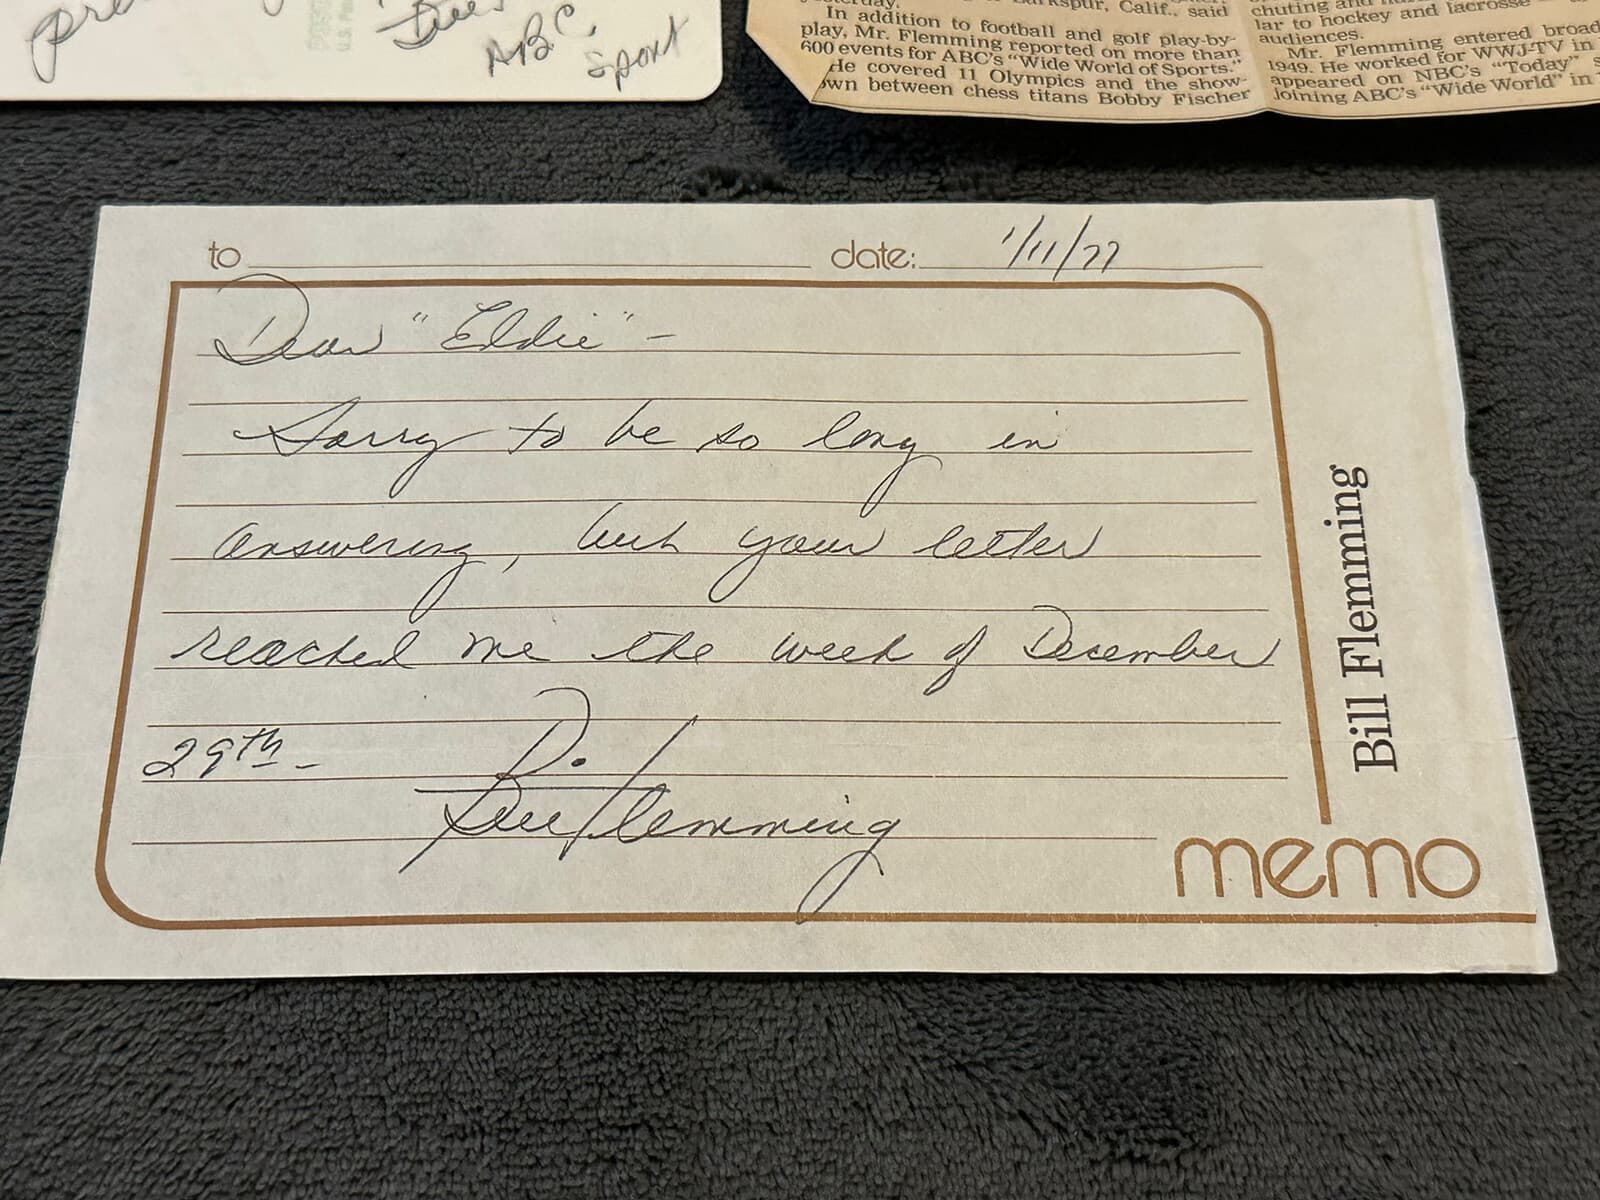 Bill
ABC
Sport
Larkspur, Calif., said
In addition to football and golf play-by-
play, Mr. Flemming reported on more than
600 events for ABC's "Wide World of Sports."
He covered 11 Olympics and the show-
own between chess titans Bobby Fischer
chuting and
lar to hockey and lacrosse
audiences.
Mr. Flemming entered broad
1949. He worked for WWJ-TV in
appeared on NBC's "Today"
joining ABC's "Wide World" in
to date: 1/11/77
Dear "Eddie" -
Sorry to be so long in
answering, but your letter
reached me the week of December
29th -
Bill Flemming
Bill Flemming
memo